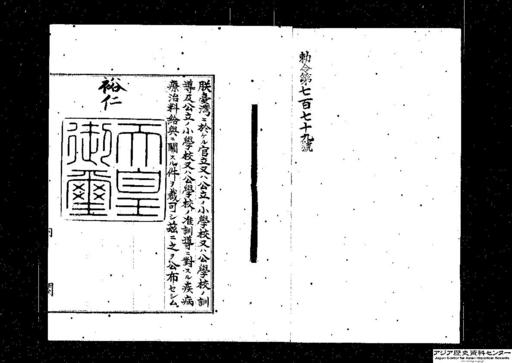 勅令第七百七十九號
朕臺灣ニ於ケル官立又ハ公立ノ小學校又ハ公學校ノ訓
導及公立ノ小學校又ハ公學校ノ准訓導ニ對スル疾病
療治料給與ニ關スル件ヲ裁可シ茲ニ之ヲ公布セシム
裕仁
天皇
御璽
内閣
アジア歴史資料センター
Japan Center for Asian Historical Records